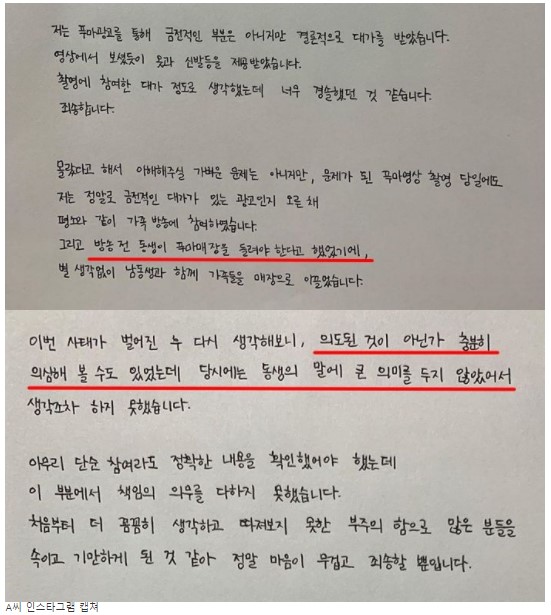 저는 푸마광고를 통해 금전적인 부분은 아니지만 결론적으로 대가를 받았습니다.
영상에서 보셨듯이 옷과 신발등을 제공받았습니다.
촬영에 참여한 대가 정도로 생각했는데 너무 경솔했던 것 같습니다.
죄송합니다.
몰랐다고 해서 이해해주실 가벼운 문제는 아니지만, 문제가 된 푸마영상 촬영 당일에도
저는 정말로 금전적인 대가가 있는 광고인지 모른 채
평소와 같이 가족 방송에 참여하였습니다.
그리고 방송 전 동생이 푸마매장을 들려야 한다고 했었기에,
별 생각없이 남동생과 함께 가족들을 매장으로 이끌었습니다.
이번 사태가 벌어진 후 다시 생각해보니, 의도된 것이 아닌가 충분히
의심해 볼 수도 있었는데 당시에는 동생의 말에 큰 의미를 두지 않았어서
생각조차 하지 못했습니다.
아무리 단순 참여라도 정확한 내용을 확인했어야 했는데
이 부분에서 책임의 의무를 다하지 못했습니다.
처음부터 더 꼼꼼히 생각하고 따져보지 못한 부주의 함으로 많은 분들을
속이고 기만하게 된 것 같아 정말 마음이 무겁고 죄송할 뿐입니다.
A씨 인스타그램 캡쳐